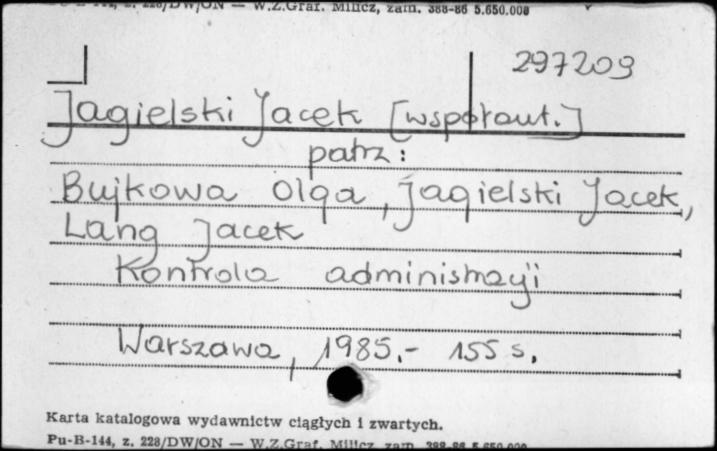 Pu-B-144, z. 228/DW/ON — W.Z.Graf. Milicz, zam. 388-86 5.650.000
297209
Jagielski Jacek [współaut.]
patrz:
Bujkowa Olga, Jagielski Jacek,
Lang Jacek
Kontrola administracji
Warszawa, 1985.- 155 s.
Karta katalogowa wydawnictw ciągłych i zwartych.
Pu-B-144, z. 228/DW/ON — W.Z.Graf. Milicz zam. 388-86 5.650.000